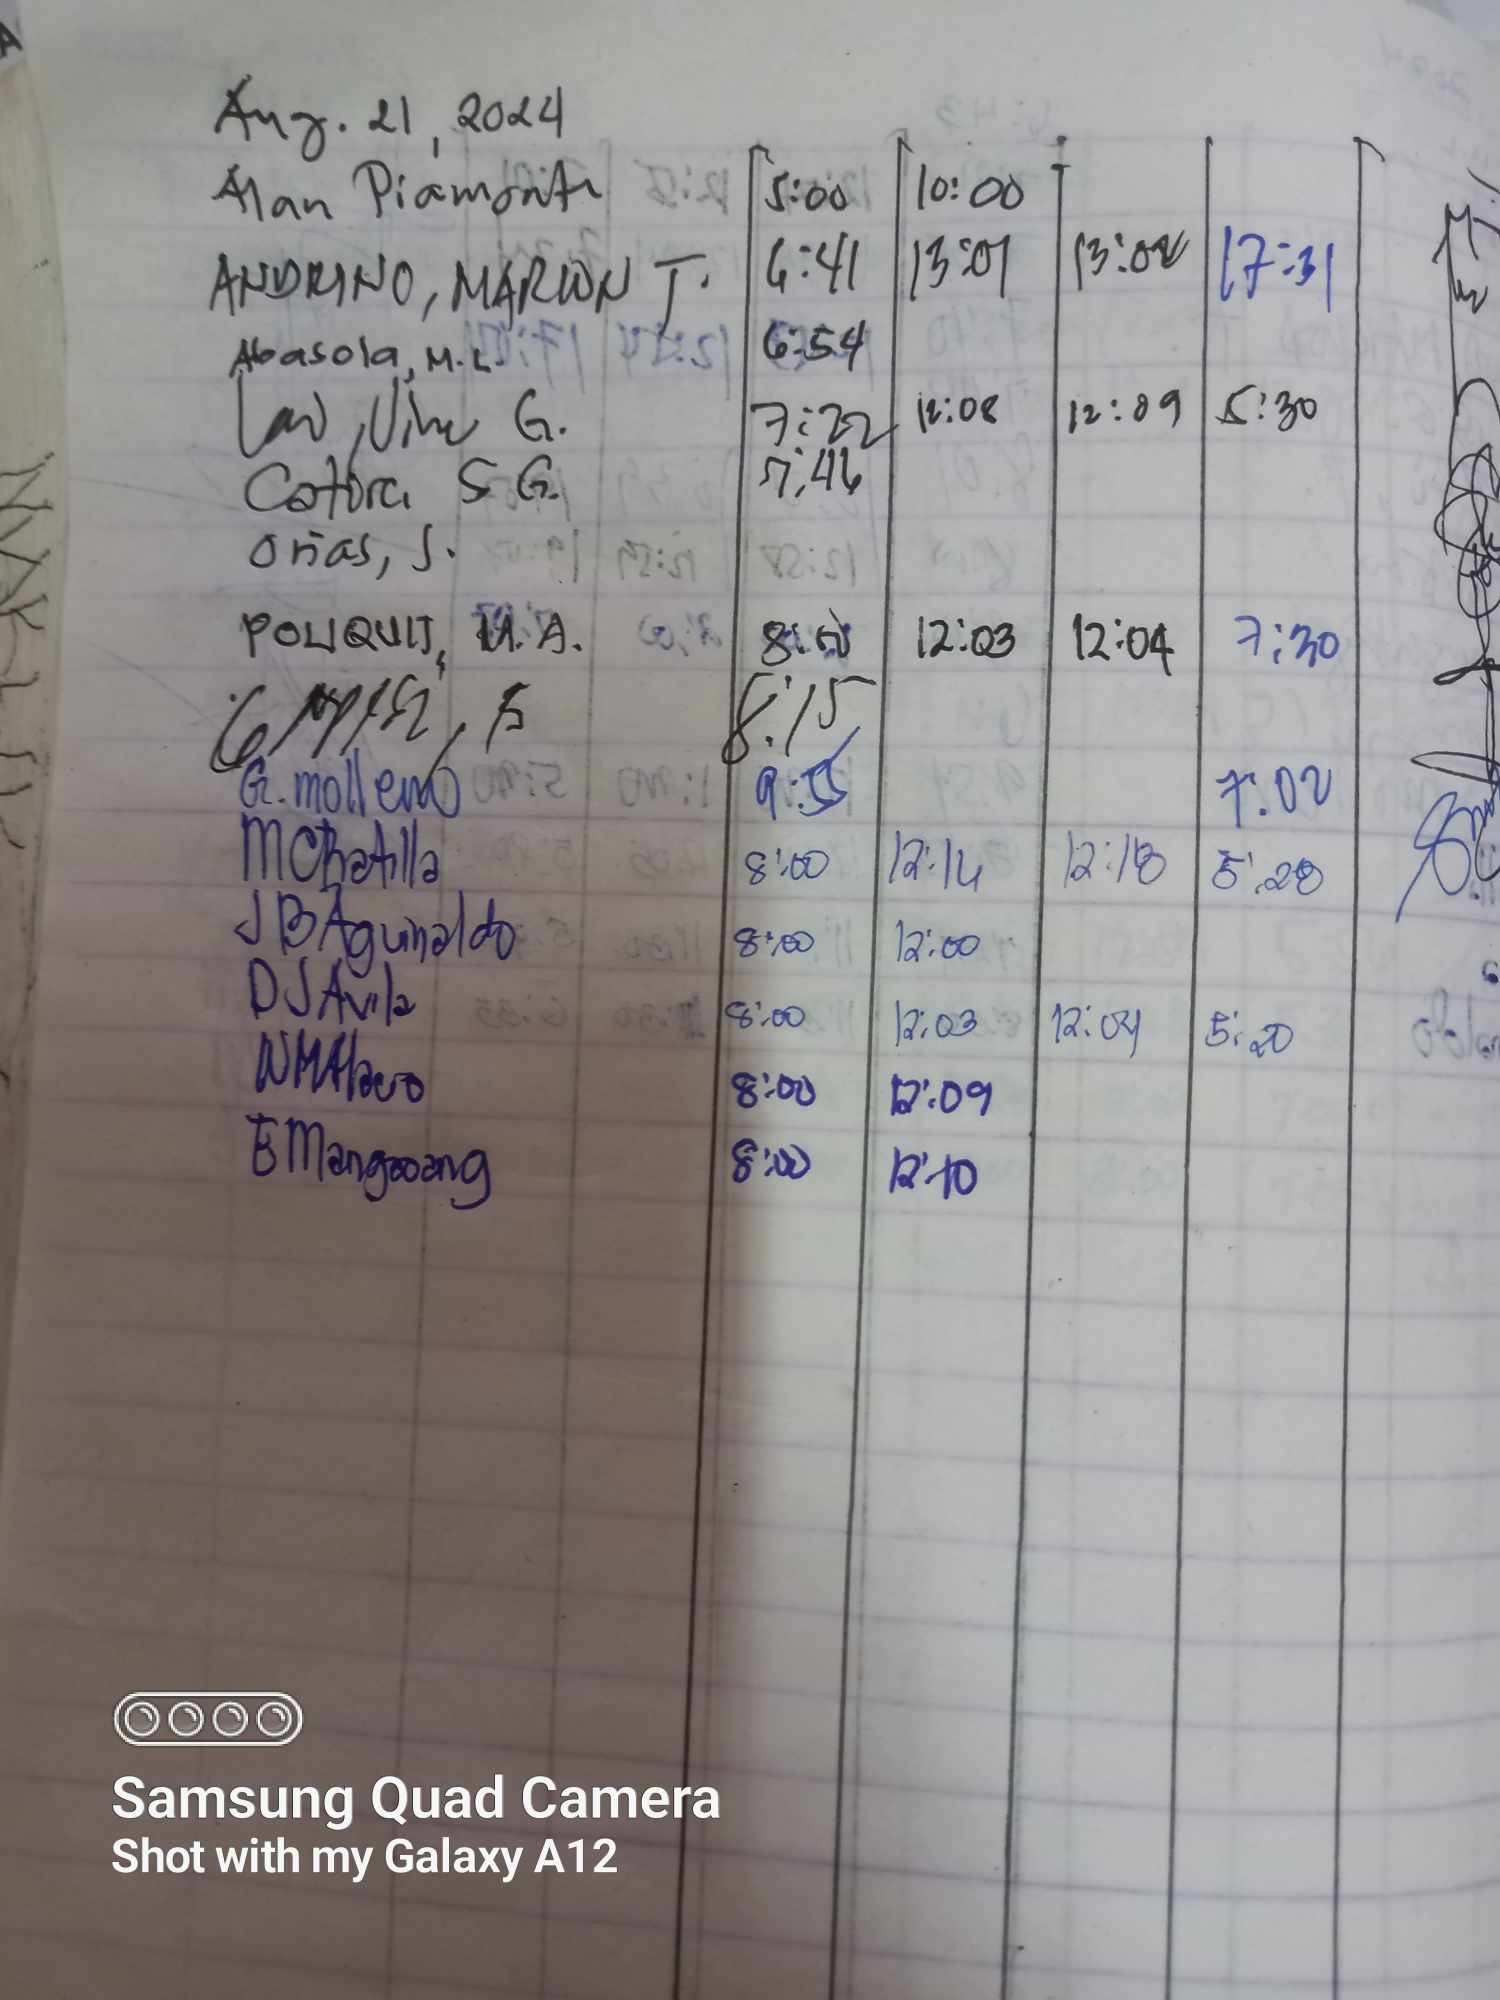 Aug. 21, 2024
Alan Piamonte 5:00 10:00
ANDRINO, MARLON T. 6:41 13:01 13:02 17:31
Abasola, M.L. 6:54
G. 7:22 12:08 12:09 5:30
S G. 7:46
Orias, S.
POLIQUIT, M.A. 8:00 12:03 12:04 7:30
8:15
G. molleno 9:55 7:02
MCBatilla 8:00 12:14 12:18 5:28
JBAguinaldo 8:00 12:00
DJAvila 8:00 12:03 12:04 5:20
8:00 12:09
E Mangooang 8:00 12:10
Samsung Quad Camera
Shot with my Galaxy A12